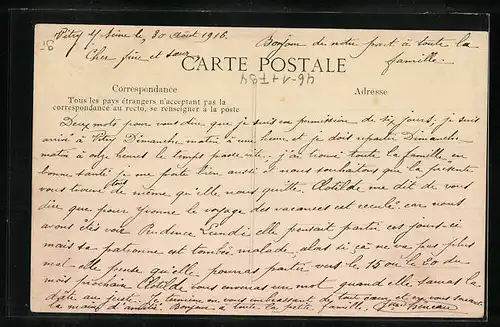 Vitry s/ Seine le, 30 Août 1916.
Cher frère et sœur,
Bonjour de notre part à toute la
famille.
CARTE POSTALE
Correspondance
Adresse
Tous les pays étrangers n'acceptant pas la
correspondance au recto, se renseigner à la poste
Deux mots pour vous dire que je suis en permission de six jours, je suis
arrivé à Vitry Dimanche matin à une heure et je dois repartir Dimanche
matin à onze heures le temps passe vite. j'ai trouvé toute la famille en
bonne santé je me porte bien aussi nous souhaitons que la présente
vous trouve tout de même qu'elle nous quitte. Clotilde me dit de vous
dire que pour Yvonne le voyage des vacances est reculé car nous
avons étés voir Prudence Lundi elle pensait partir ces jours-ci
mais sa patronne est tombée malade, alors si ça ne va pas plus
mal elle pense qu'elle pourras partir vers le 15 ou le 20 du
mois prochain Clotilde vous enverras un mot quand elle sauras la
date au juste. Je termine en vous embrassant de tout cœur et en vous serrant
la main d'amitié. Bonjour à toute la petite famille.